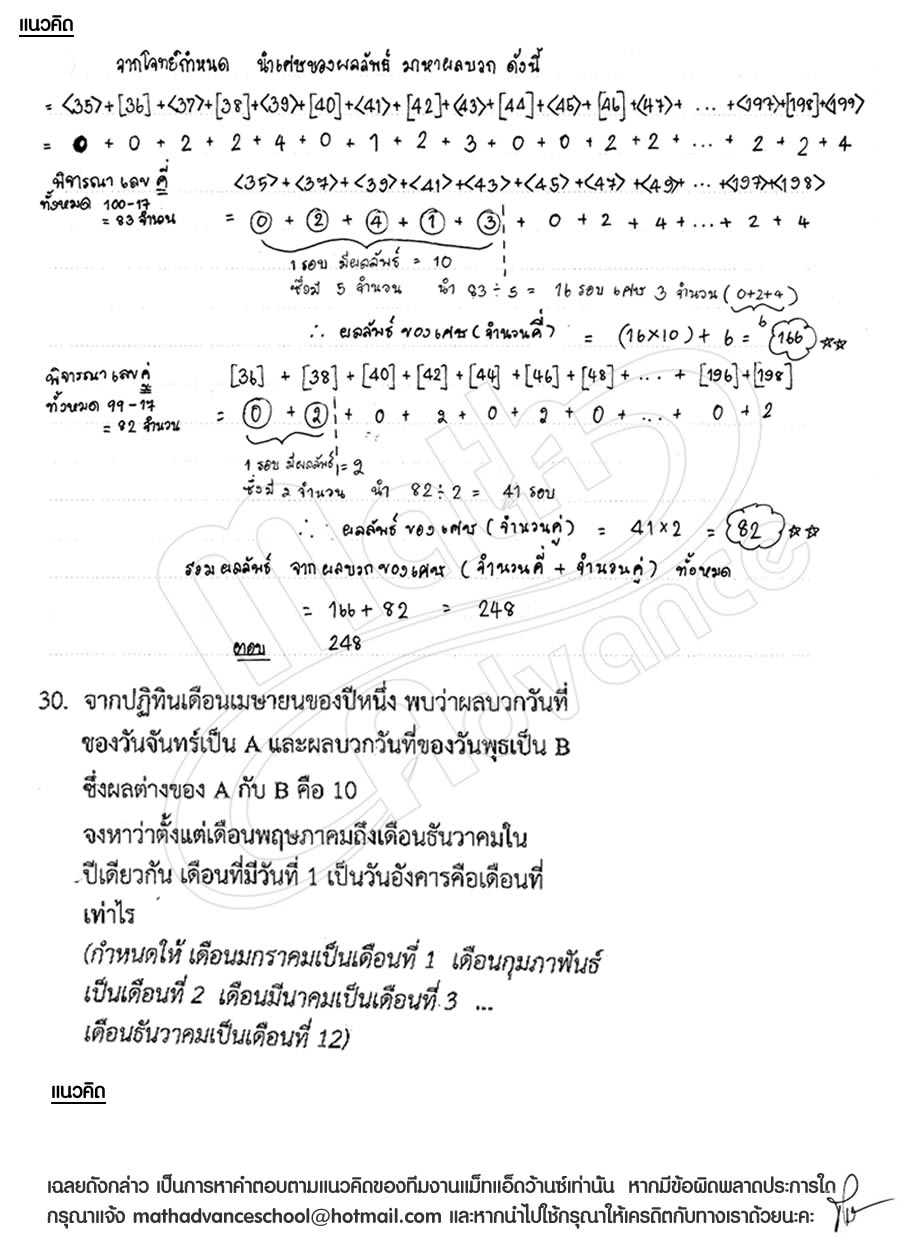 แนวคิด
จากโจทย์กำหนด นำเศษของผลลัพธ์ มาหาผลบวก ดังนี้
= <35>+[36]+<37>+[38]+<39>+[40]+<41>+[42]+<43>+[44]+<45>+[46]+<47>+ ... +<197>+[198]+<199>
= 0 + 0 + 2 + 2 + 4 + 0 + 1 + 2 + 3 + 0 + 0 + 2 + 2 + ... + 2 + 2 + 4
พิจารณา เลข คี่ <35>+<37>+<39>+<41>+<43>+<45>+<47>+<49>+ ... +<197>+<198>
ทั้งหมด 100-17 = 83 จำนวน
= 0 + 2 + 4 + 1 + 3 + 0 + 2 + 4 + ... + 2 + 4
1 รอบ มีผลลัพธ์ = 10
ซึ่งมี 5 จำนวน นำ 83 ÷ 5 = 16 รอบ เศษ 3 จำนวน (0+2+4)
6
∴ ผลลัพธ์ ของเศษ (จำนวนคี่) = (16×10) + 6 = 166
พิจารณา เลข คู่ [36] + [38] + [40] + [42] + [44] + [46] + [48] + ... + [196] + [198]
ทั้งหมด 99-17 = 82 จำนวน
= 0 + 2 + 0 + 2 + 0 + 2 + 0 + ... + 0 + 2
1 รอบ มีผลลัพธ์ = 2
ซึ่งมี 2 จำนวน นำ 82 ÷ 2 = 41 รอบ
∴ ผลลัพธ์ ของเศษ (จำนวนคู่) = 41 × 2 = 82
รวมผลลัพธ์ จากผลบวกของเศษ (จำนวนคี่ + จำนวนคู่) ทั้งหมด
= 166 + 82 = 248
ตอบ 248
30. จากปฏิทินเดือนเมษายนของปีหนึ่ง พบว่าผลบวกวันที่
ของวันจันทร์เป็น A และผลบวกวันที่ของวันพุธเป็น B
ซึ่งผลต่างของ A กับ B คือ 10
จงหาว่าตั้งแต่เดือนพฤษภาคมถึงเดือนธันวาคมใน
ปีเดียวกัน เดือนที่มีวันที่ 1 เป็นวันอังคารคือเดือนที่
เท่าไร
(กำหนดให้ เดือนมกราคมเป็นเดือนที่ 1 เดือนกุมภาพันธ์
เป็นเดือนที่ 2 เดือนมีนาคมเป็นเดือนที่ 3 ...
เดือนธันวาคมเป็นเดือนที่ 12)
แนวคิด
Math Advance
เฉลยดังกล่าว เป็นการหาคำตอบตามแนวคิดของทีมงานแม็ทแอ็ดว้านซ์เท่านั้น หากมีข้อผิดพลาดประการใด
กรุณาแจ้ง mathadvanceschool@hotmail.com และหากนำไปใช้กรุณาให้เครดิตกับทางเราด้วยนะคะ